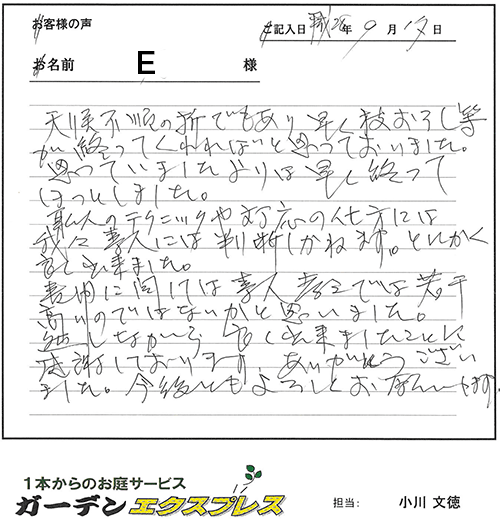 お客様の声
ご記入日 平成26年9月17日
お名前 E 様
天候不順の折でもあり、早く枝おろし等
が終ってくれればと思っておりました。
思っていましたよりは早く終って
ほっとしました。
職人のテクニックや対応の仕方には
我々素人には判断しかねます。とにかく
良く出来ました。
費用に関しては素人考えでは若干
高いのではないかと思いました。
しながら良く出来ましたことに
感謝しております。ありがとうござい
ました。今後ともよろしくおねがいします。
1本からのお庭サービス
ガーデンエクスプレス
担当: 小川 文徳